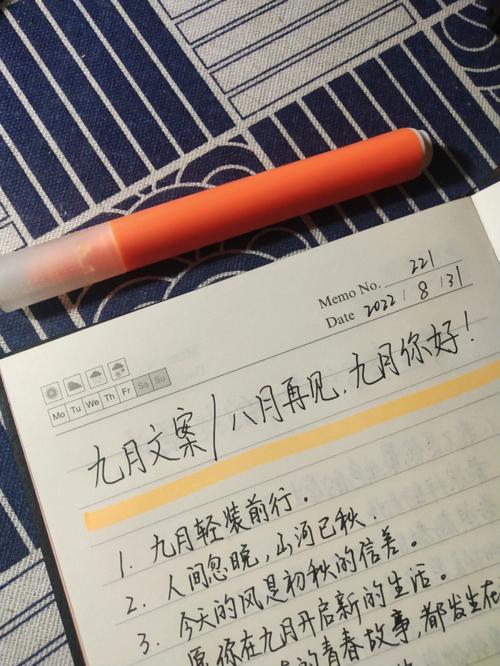 Memo No. 221
Date 2022 / 8 / 31
Mo Tu We Th Fr Sa Su
九月文案/八月再见,九月你好!
1. 九月轻装前行。
2. 人间忽晚,山河已秋.
3. 今天的风是初秋的信差。
愿你在九月开启新的生活。
的青春故事,都发生在